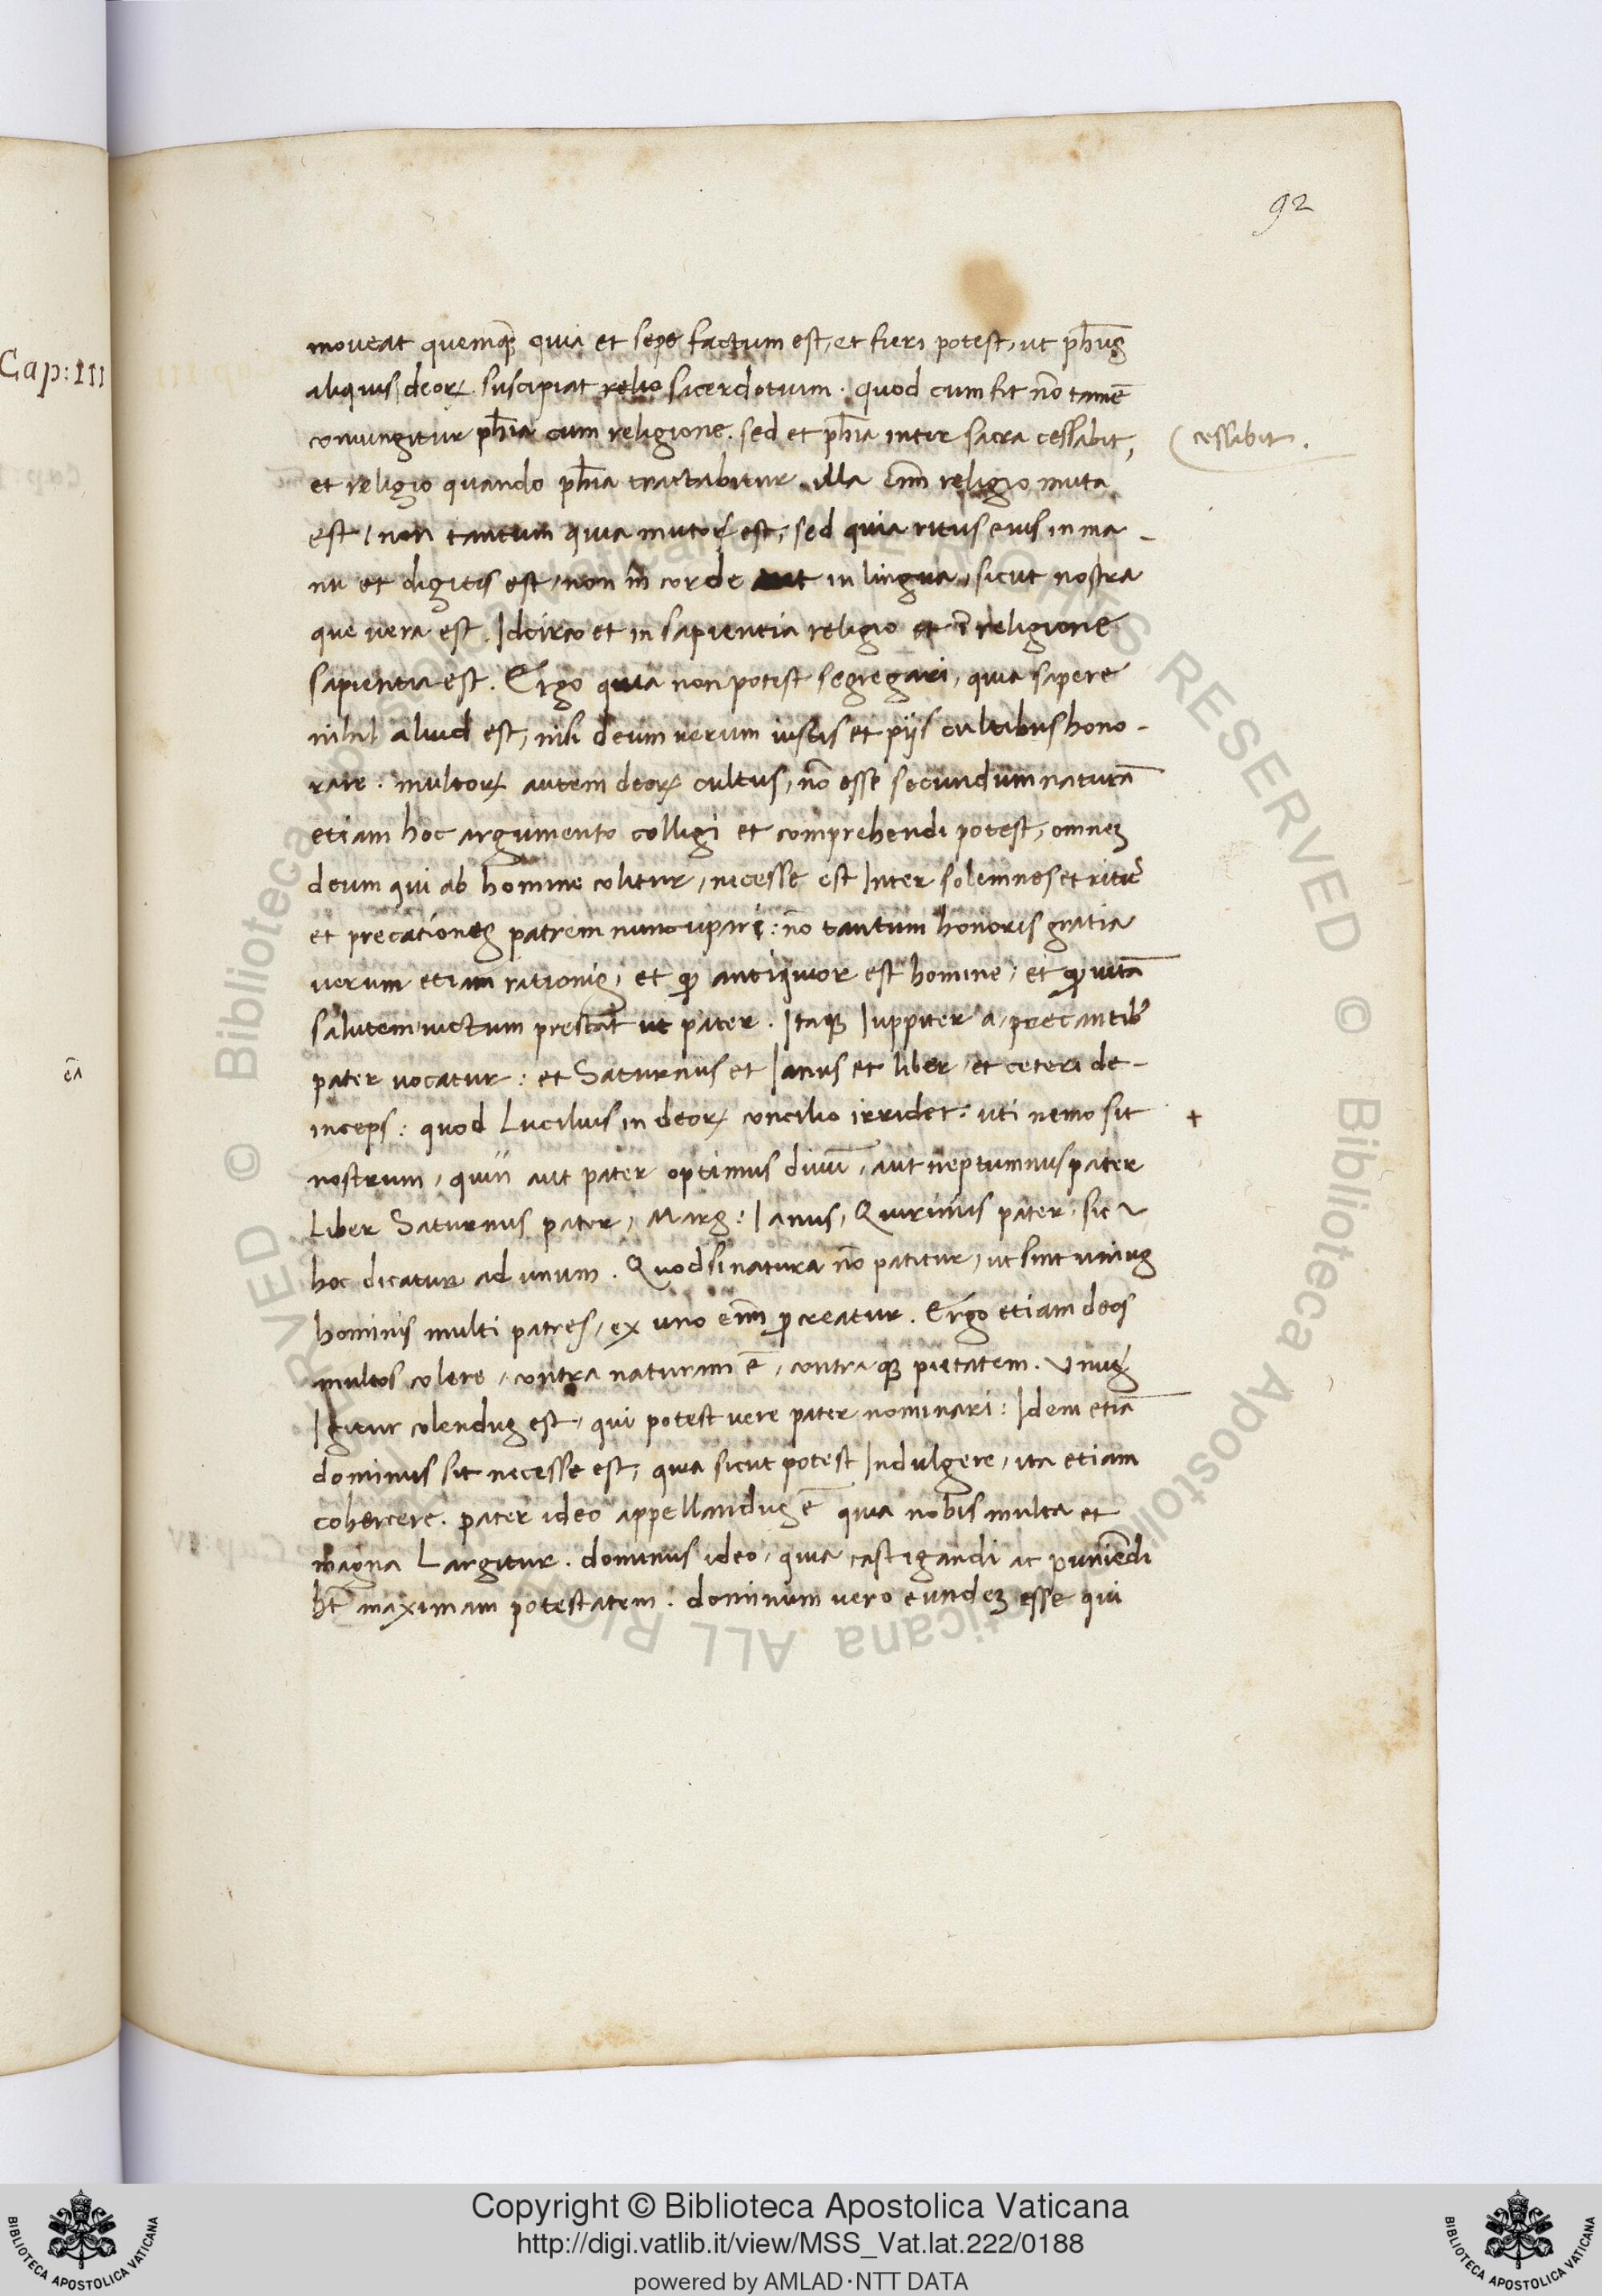 92
Cap:III
moveat quemq̃ quia et sepe factum est, et fieri potest, ut ph̄us
aliquis deoꝝ suscipiat relio sacerdotium. quod cum fit nō tamē
coniungitur ph̄ia cum religione. sed et ph̄ia inter sacra cessabit,
(cessabit.
et religio quando ph̄ia tractabitur. illa em̄ religio muta
est, non tantum quia mutoꝝ est, sed quia ritus eius in ma-
nu et digitis est, non in corde aut in lingua, sicut nostra
que vera est. Idcirco et in sapientia religio et ī religione
sapientia est. Ergo quia non potest segregari, quia sapere
nihil aliud est, nisi deum verum iustis et pijs cultibus hono-
rare: multoꝝ autem deoꝝ cultus, nō esse secundum naturā
etiam hoc argumento colligi et comprehendi potest, omneʒ
deum qui ab homine colitur, necesse est Inter solemnes et ritus
et precationes patrem nuncupari: nō tantum honoris gratia
verum etiam rationis, et ꝙ antiquior est homine, et ꝙ vitā
salutem victum prestat ut pater. Itaqꝫ Iuppiter a, precantibꝰ
cā
pater vocatur: et Saturnus et Ianus et liber, et ceteri de-
inceps: quod Lucilius in deoꝝ concilio irridet. uti nemo sit +
nostrum, quin aut pater optimus divū, aut neptumnus pater
Liber Saturnus pater, Mars: Ianus, Quirinus pater, sic
hoc dicatur ad unum. Quod si natura nō patitur, ut sint unius
hominis multi patres, ex uno enī ꝓcreatur. Ergo etiam deos
multos colere, contra naturam ē, contra qꝫ pietatem. Unus
Igitur colendus est, qui potest vere pater nominari: Idem etiā
dominus sit necesse est, quia sicut potest Indulgere, ita etiam
cohercere. pater ideo appellandus ē quia nobis multa et
magna Largitur. dominus ideo, quia castigandi ac puniendi
ht̄ maximam potestatem. dominum vero eundeʒ esse qui
Copyright © Biblioteca Apostolica Vaticana
http://digi.vatlib.it/view/MSS_Vat.lat.222/0188
powered by AMLAD·NTT DATA
BIBLIOTECA APOSTOLICA VATICANA
BIBLIOTECA APOSTOLICA VATICANA